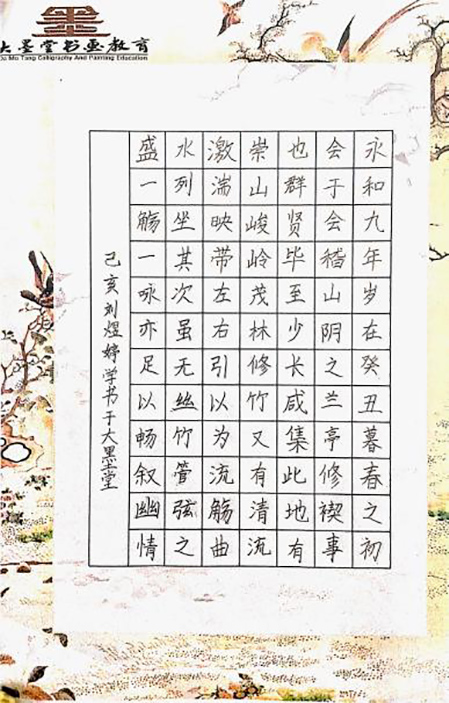 大墨堂书画教育
Da Mo Tang Calligraphy And Painting Education
永和九年岁在癸丑暮春之初
会于会稽山阴之兰亭修禊事
也群贤毕至少长咸集此地有
崇山峻岭茂林修竹又有清流
激湍映带左右引以为流觞曲
水列坐其次虽无丝竹管弦之
盛一觞一咏亦足以畅叙幽情
己亥刘煜婷学书于大墨堂